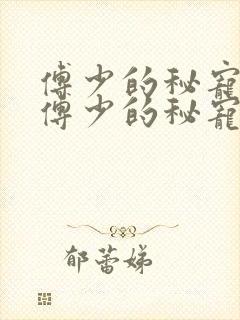 傅少的秘寵
傅少的秘寵
郁蕾娣